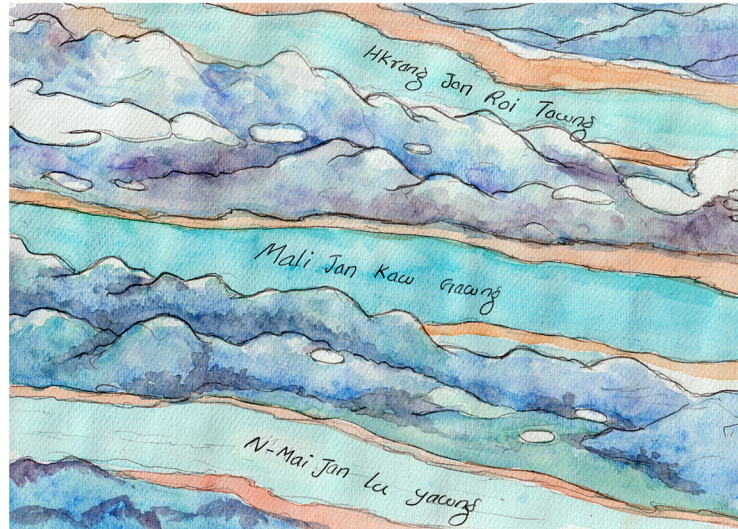 Hkrang Jan Roi Tawng
Mali Jan Kaw Gawng
N-Mai Jan Lu Yawng